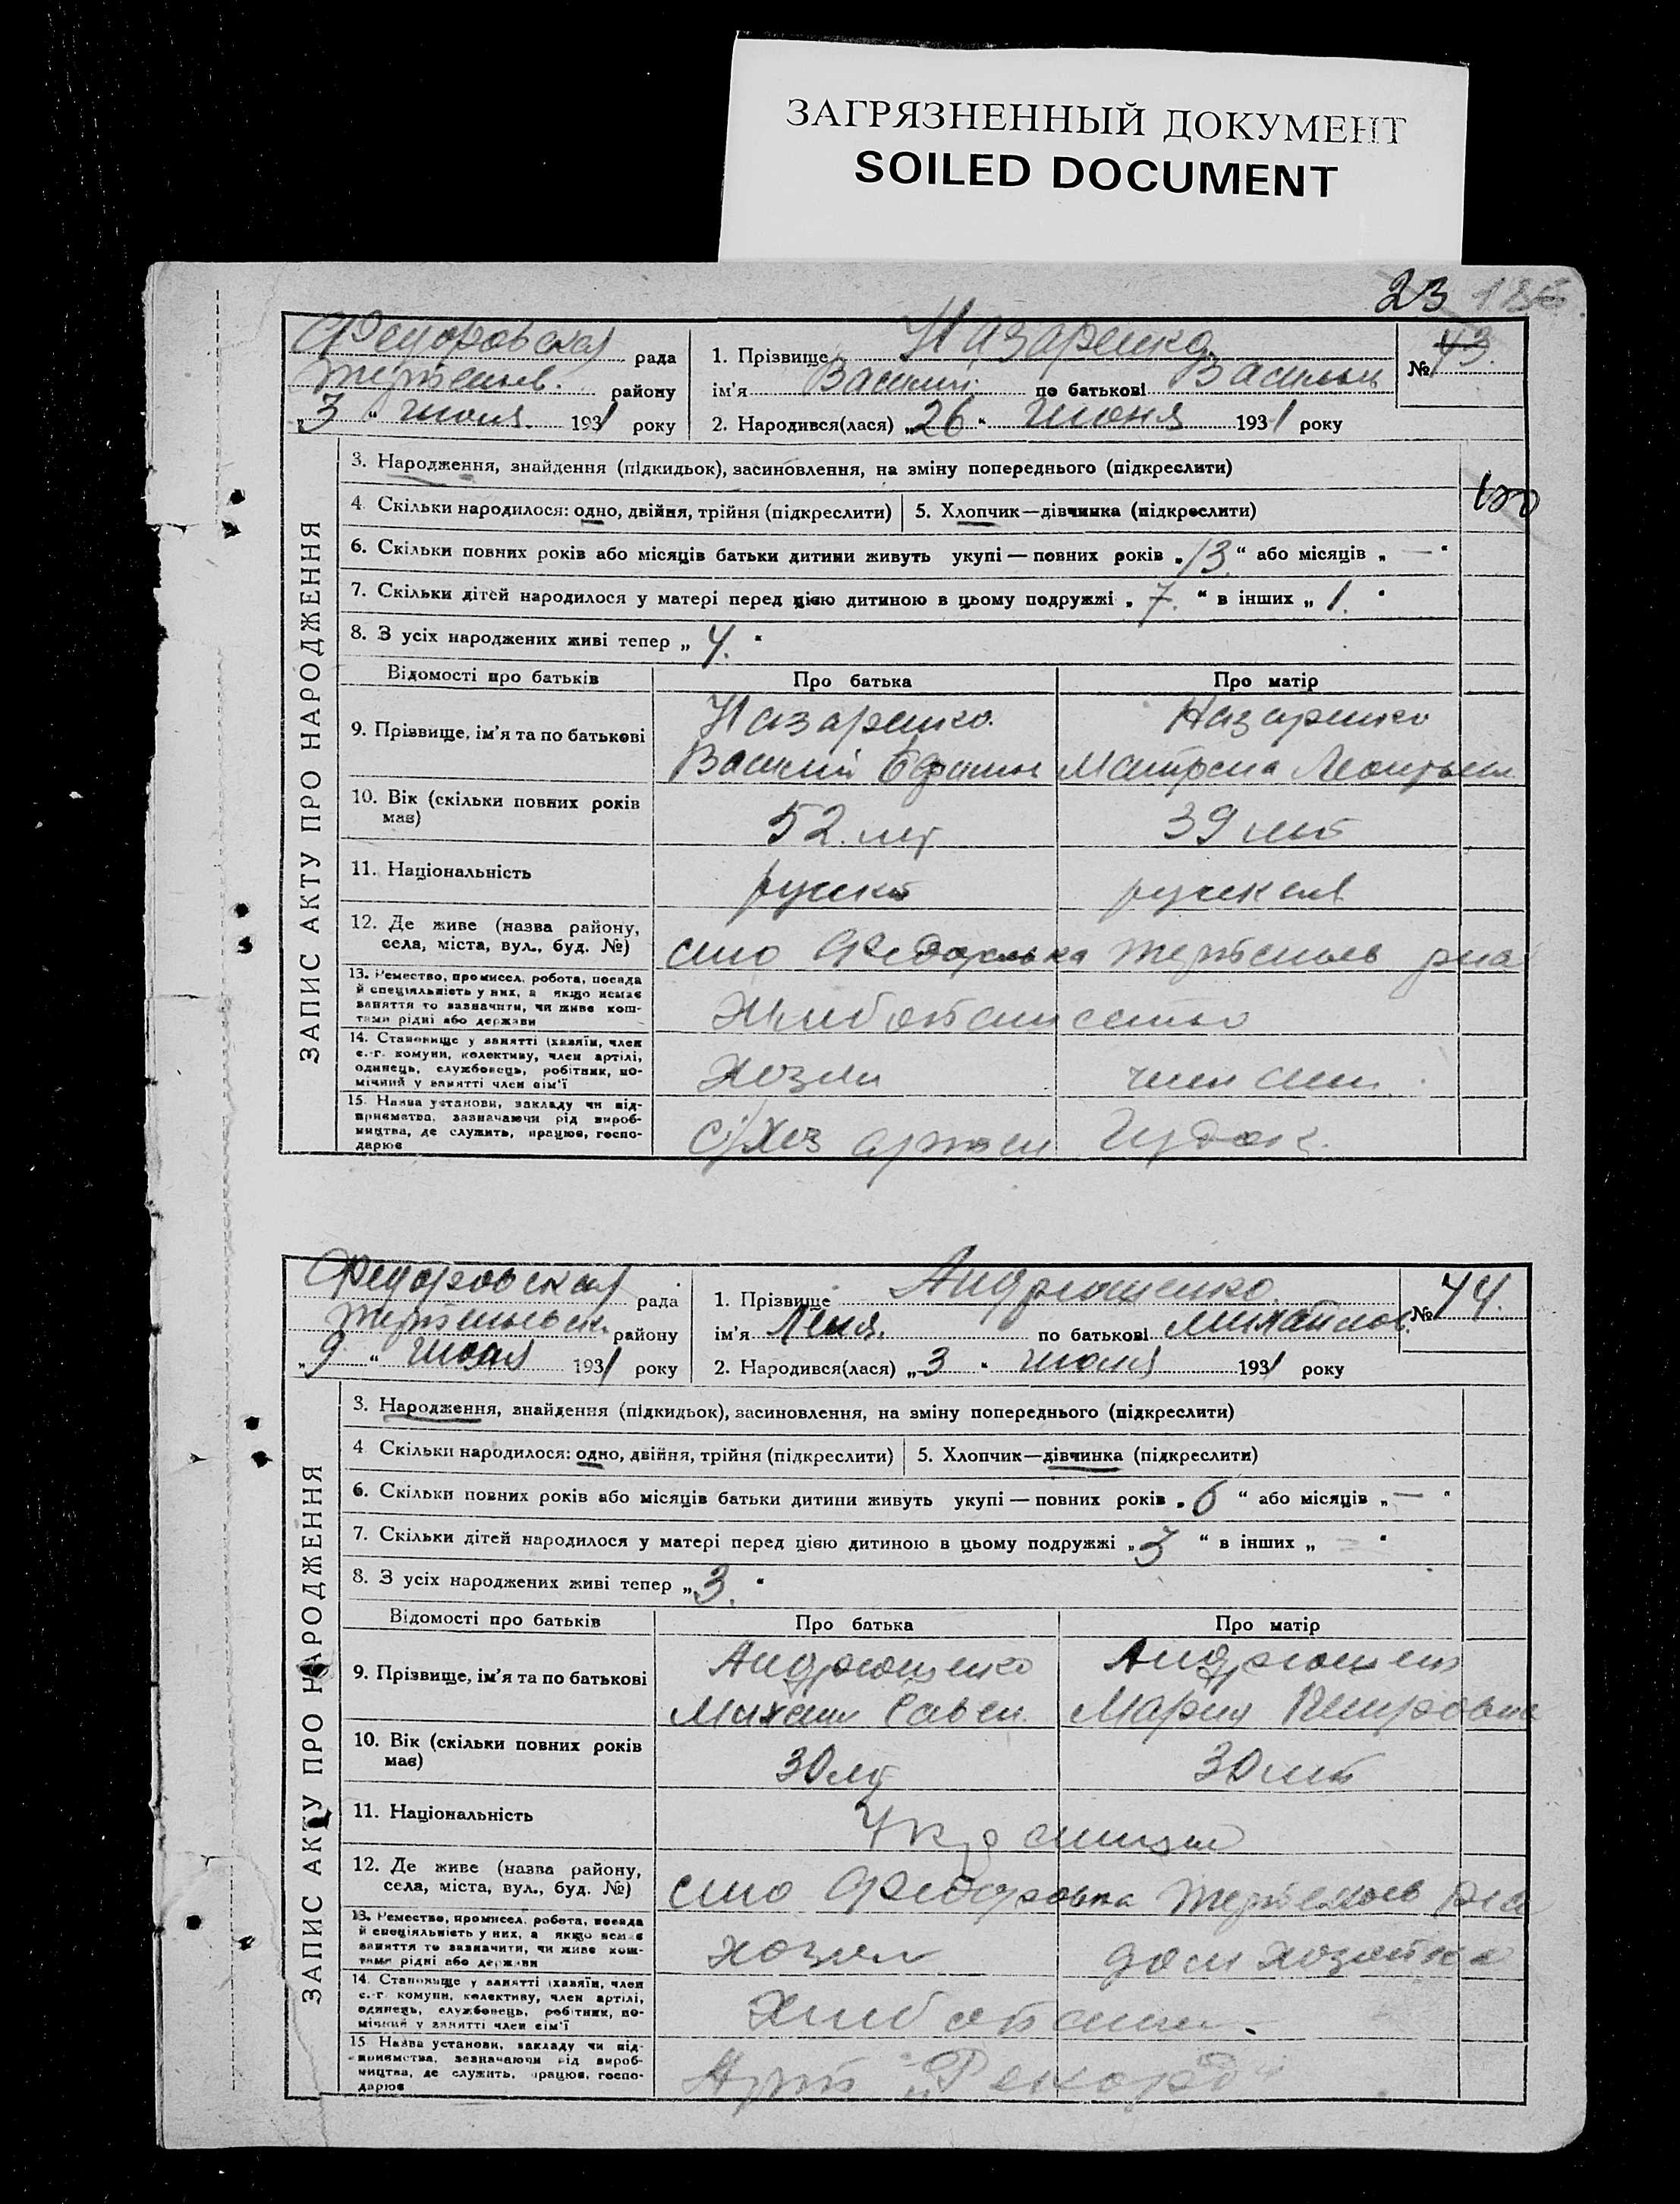 ЗАГРЯЗНЕННЫЙ ДОКУМЕНТ
SOILED DOCUMENT
23 186
Федоровская рада
района
"3" июля 1931 року
1. Прізвище Назаренко
ім'я Василий по батькові Васильев
2. Народився(лася) "26" июня 1931 року
№ 43.
ЗАПИС АКТУ ПРО НАРОДЖЕННЯ
3. Народження, знайдення (підкидьок), засиновлення, на зміну попереднього (підкреслити)
4 Скільки народилося: одно, двійня, трійня (підкреслити)
5. Хлопчик—дівчинка (підкреслити)
6. Скільки повних років або місяців батьки дитини живуть укупі — повних років „13." або місяців „—"
7. Скільки дітей народилося у матері перед цією дитиною в цьому подружжі „7." в інших „1."
8. З усіх народжених живі тепер „4."
Відомості про батьків
Про батька
Про матір
9. Прізвище, ім'я та по батькові
Назаренко.
Василий Ефимов
Назаренко
Матрена Леонтьев
10. Вік (скільки повних років має)
52 лет
39 лет
11. Національність
русский
русская
12. Де живе (назва району, села, міста, вул., буд. №)
село Федоровка
13. Ремество, промисел, робота, посада й спеціяльність у них, а якщо немає заняття то зазначити, чи живе коштами рідні або держави
14. Становище у занятті (хазяїн, член с.-г. комуни, колективу, член артілі, одинець, службовець, робітник, помічний у занятті член сім'ї
Хозяин
член семьи
15. Назва установи, закладу чи підприємства, зазначаючи рід виробництва, де служить, працює, господарює
С/Хоз артель
Федоровская рада
району
"9" июля 1931 року
1. Прізвище Андрющенко
ім'я Лена. по батькові Михайлов.
2. Народився(лася) „3" июля 1931 року
№ 44.
ЗАПИС АКТУ ПРО НАРОДЖЕННЯ
3. Народження, знайдення (підкидьок), засиновлення, на зміну попереднього (підкреслити)
4 Скільки народилося: одно, двійня, трійня (підкреслити)
5. Хлопчик—дівчинка (підкреслити)
6. Скільки повних років або місяців батьки дитини живуть укупі — повних років „6" або місяців „—"
7. Скільки дітей народилося у матері перед цією дитиною в цьому подружжі „3" в інших „="
8. З усіх народжених живі тепер „3."
Відомості про батьків
Про батька
Про матір
9. Прізвище, ім'я та по батькові
Андрющенко
Михаил Савел.
Андрющен
Мария Петровна
10. Вік (скільки повних років має)
30 лет
30 лет
11. Національність
12. Де живе (назва району, села, міста, вул., буд. №)
село Федоровка
13. Ремество, промисел, робота, посада й спеціяльність у них, а якщо немає заняття то зазначити, чи живе коштами рідні або держави
хозяин
дом хозяйка
14. Становище у занятті (хазяїн, член с.-г. комуни, колективу, член артілі, одинець, службовець, робітник, помічний у занятті член сім'ї
15 Назва установи, закладу чи підприємства, зазначаючи рід виробництва, де служить, працює, господарює
Арт. „Рекорд"